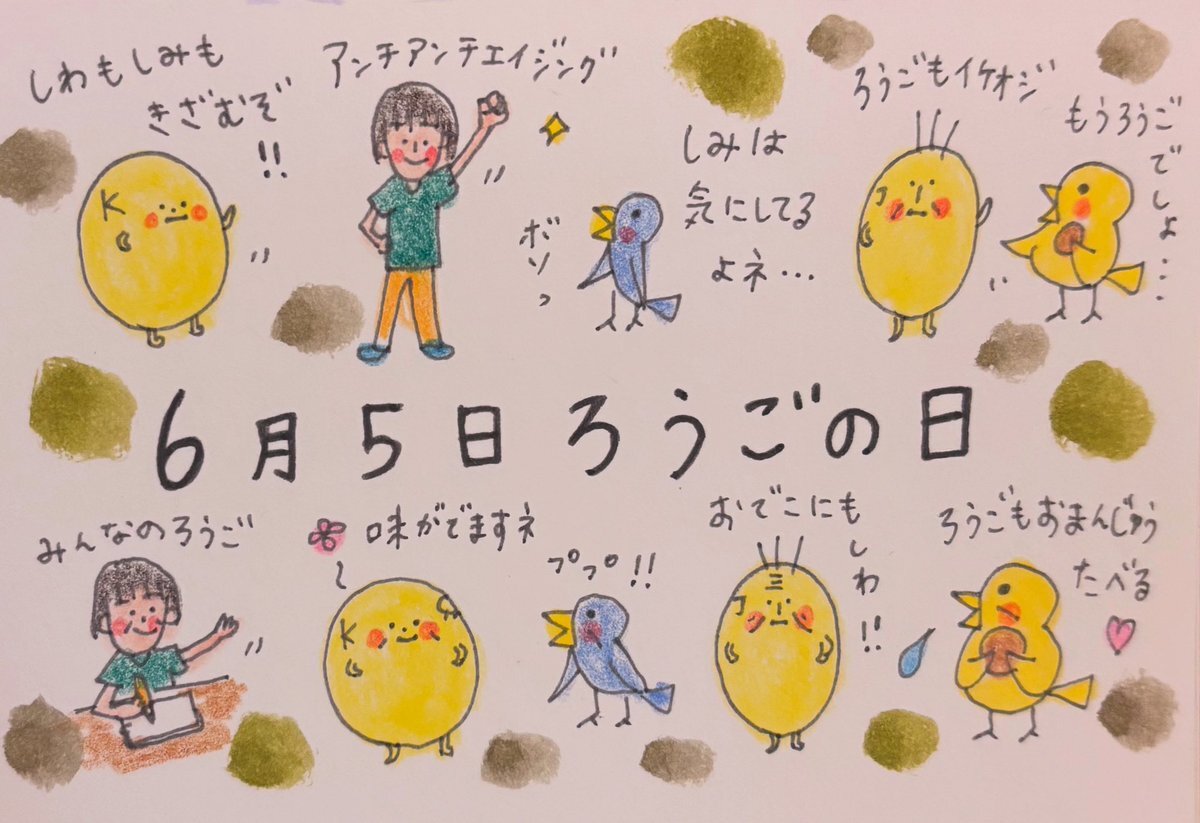 しわもしみも
きざむぞ
!!
アンチアンチエイジング
しみは
気にしてる
よネ…
ボソッ
ろうごもイケオジ
もうろうごでしょ…
K
J
6月5日ろうごの日
みんなのろうご
味がでますネ
ププ!!
おでこにも
しわ!!
ろうごもおまんじゅう
たべる
K
J